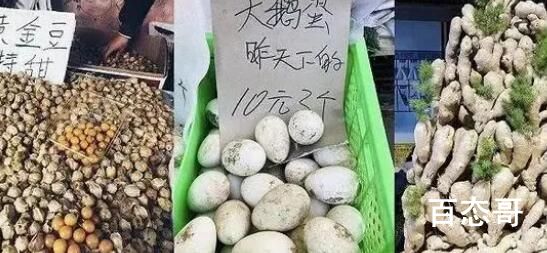 黄金豆
特甜
大鹅蛋
昨天下的
10元3个
百态哥